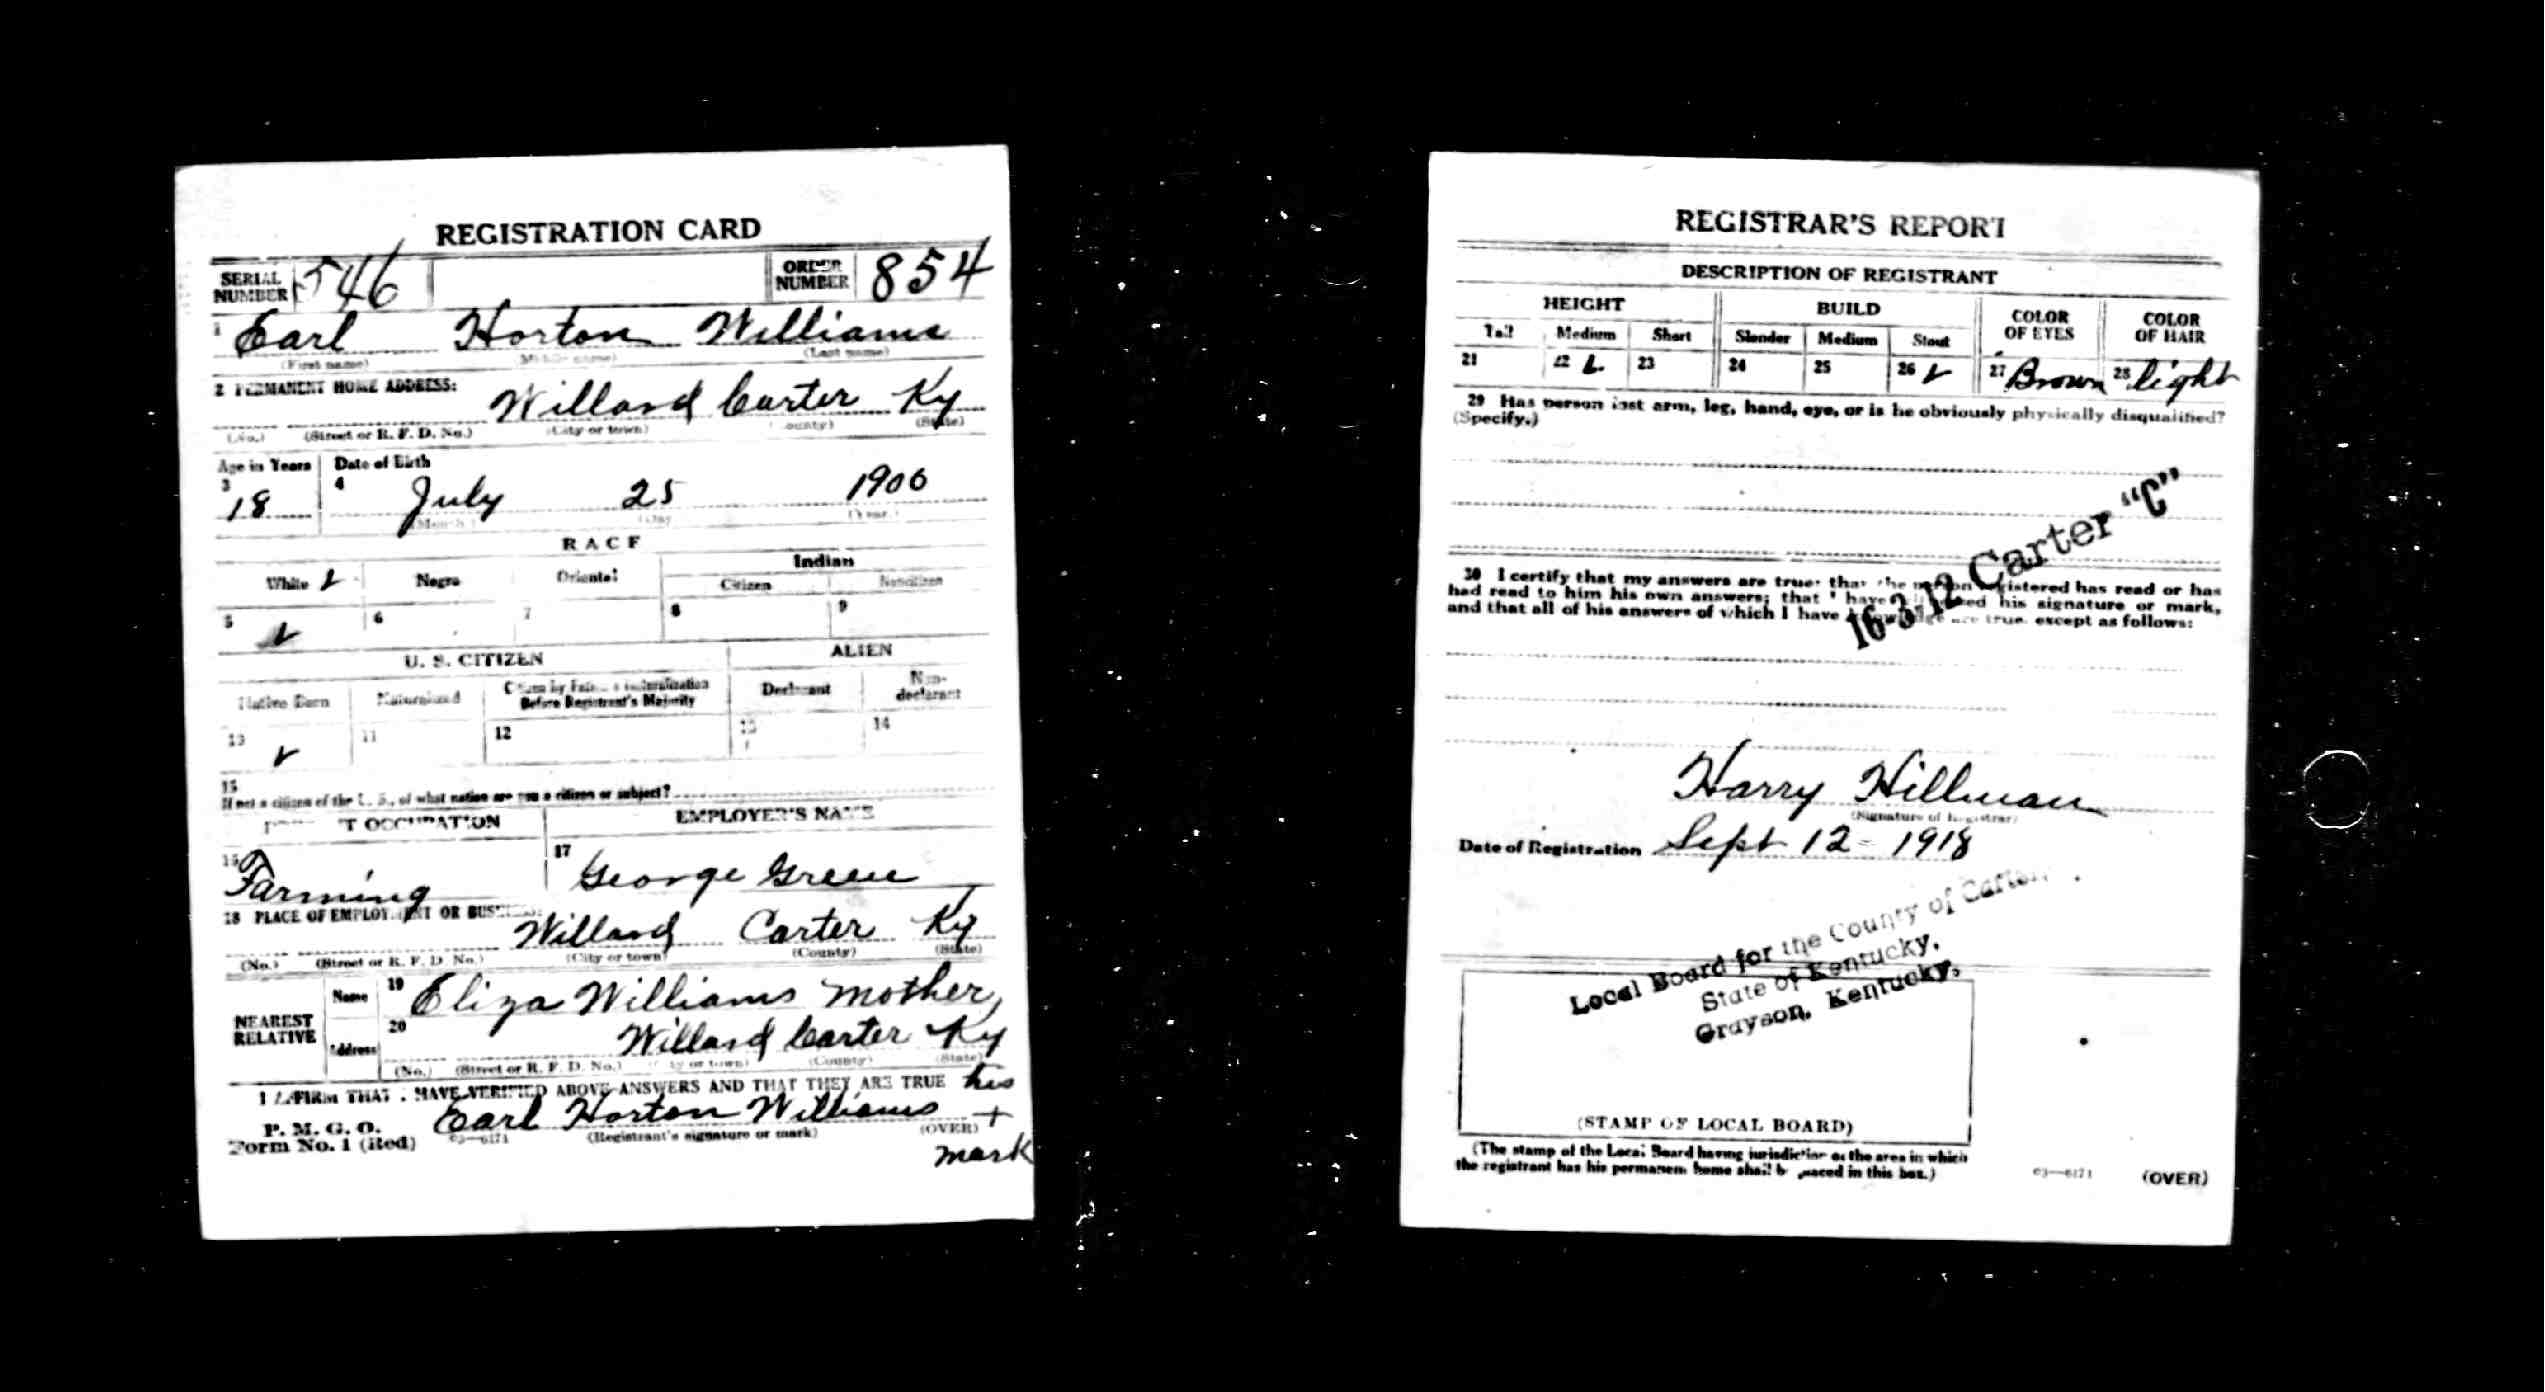 REGISTRATION CARD
SERIAL NUMBER 546 ORDER NUMBER 854
1 Earl Horton Williams
(First name) (Middle name) (Last name)
2 PERMANENT HOME ADDRESS:
Willard Carter Ky
(No.) (Street or R. F. D. No.) (City or town) (County) (State)
Age in Years Date of Birth
3 18 4 July 25 1900
(Month) (Day) (Year.)
RACE
White Negro Oriental Indian
Citizen Noncitizen
5 6 7 8 9
U. S. CITIZEN ALIEN
Native Born Naturalized Citizen by Father's Naturalization Before Registrant's Majority Declarant Non-declarant
10 11 12 13 14
15
If not a citizen of the U. S., of what nation are you a citizen or subject?
PRESENT OCCUPATION EMPLOYER'S NAME
16 Farming 17 George Green
18 PLACE OF EMPLOYMENT OR BUSINESS:
Willard Carter Ky
(No.) (Street or R. F. D. No.) (City or town) (County) (State)
NEAREST RELATIVE
Name 19 Eliza Williams mother
Address 20 Willard Carter Ky
(No.) (Street or R. F. D. No.) (City or town) (County) (State)
I AFFIRM THAT I HAVE VERIFIED ABOVE ANSWERS AND THAT THEY ARE TRUE his
P. M. G. O.
Form No. 1 (Red) 03—6171 Earl Horton Williams +
(Registrant's signature or mark) (OVER)
mark
REGISTRAR'S REPORT
DESCRIPTION OF REGISTRANT
HEIGHT BUILD COLOR OF EYES COLOR OF HAIR
Tall Medium Short Slender Medium Stout
21 22 23 24 25 26 27 Brown 28 light
29 Has person lost arm, leg, hand, eye, or is he obviously physically disqualified?
(Specify.)
16-3-12 Carter "C"
30 I certify that my answers are true; that the person registered has read or has
had read to him his own answers; that I have witnessed his signature or mark,
and that all of his answers of which I have knowledge are true, except as follows:
Harry Hillman
(Signature of Registrar)
Date of Registration Sept 12 - 1918
Local Board for the County of Carter,
State of Kentucky,
Grayson, Kentucky,
(STAMP OF LOCAL BOARD)
(The stamp of the Local Board having jurisdiction of the area in which
the registrant has his permanent home shall be placed in this box.)
03—6171 (OVER)